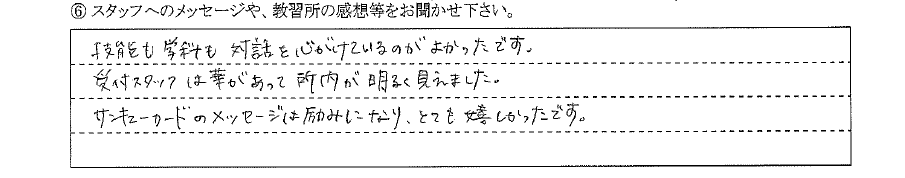 ⑥ スタッフへのメッセージや、教習所の感想等をお聞かせ下さい。
技能も学科も対話を心がけているのがよかったです。
受付スタッフは華があって所内が明るく見えました。
サンキューカードのメッセージは励みになり、とても嬉しかったです。